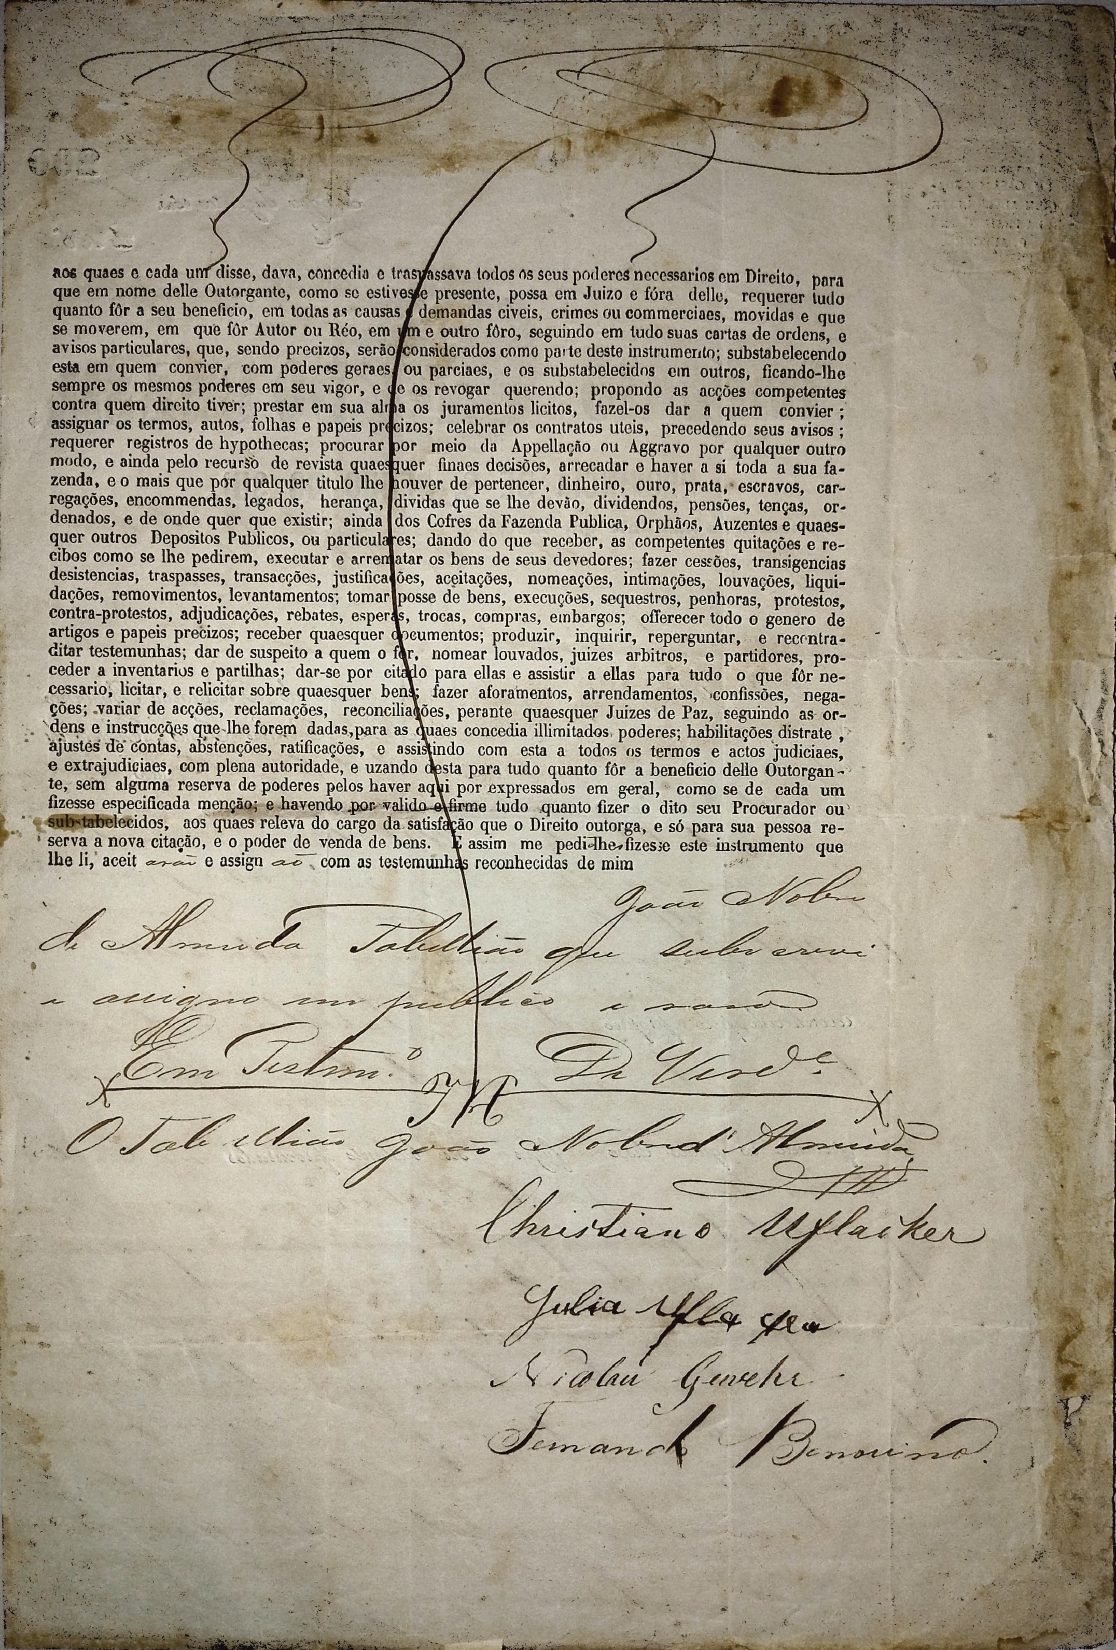 aos quaes e cada um disse, dava, concedia e traspassava todos os seus poderes necessarios em Direito, para
que em nome delle Outorgante, como se estivesse presente, possa em Juizo e fóra delle, requerer tudo
quanto fôr a seu beneficio, em todas as causas e demandas civeis, crimes ou commerciaes, movidas e que
se moverem, em que fôr Autor ou Réo, em um e outro fôro, seguindo em tudo suas cartas de ordens, e
avisos particulares, que, sendo precizos, serão considerados como parte deste instrumento; substabelecendo
esta em quem convier, com poderes geraes, ou parciaes, e os substabelecidos em outros, ficando-lhe
sempre os mesmos poderes em seu vigor, e de os revogar querendo; propondo as acções competentes
contra quem direito tiver; prestar em sua alma os juramentos licitos, fazel-os dar a quem convier ;
assignar os termos, autos, folhas e papeis precizos; celebrar os contratos uteis, precedendo seus avisos ;
requerer registros de hypothecas; procurar por meio da Appellação ou Aggravo por qualquer outro
modo, e ainda pelo recurso de revista quaesquer finaes decisões, arrecadar e haver a si toda a sua fa-
zenda, e o mais que por qualquer titulo lhe houver de pertencer, dinheiro, ouro, prata, escravos, car-
regações, encommendas, legados, herança, dividas que se lhe devão, dividendos, pensões, tenças, or-
denados, e de onde quer que existir; ainda dos Cofres da Fazenda Publica, Orphãos, Auzentes e quaes-
quer outros Depositos Publicos, ou particulares; dando do que receber, as competentes quitações e re-
cibos como se lhe pedirem, executar e arrematar os bens de seus devedores; fazer cessões, transigencias
desistencias, traspasses, transacções, justificações, aceitações, nomeações, intimações, louvações, liqui-
dações, removimentos, levantamentos; tomar posse de bens, execuções, sequestros, penhoras, protestos,
contra-protestos, adjudicações, rebates, esperas, trocas, compras, embargos; offerecer todo o genero de
artigos e papeis precizos; receber quaesquer documentos; produzir, inquirir, reperguntar, e recontra-
ditar testemunhas; dar de suspeito a quem o fôr, nomear louvados, juizes arbitros, e partidores, pro-
ceder a inventarios e partilhas; dar-se por citado para ellas e assistir a ellas para tudo o que fôr ne-
cessario, licitar, e relicitar sobre quaesquer bens; fazer aforamentos, arrendamentos, confissões, nega-
ções; variar de acções, reclamações, reconciliações, perante quaesquer Juizes de Paz, seguindo as or-
dens e instrucções que lhe forem dadas, para as quaes concedia illimitados poderes; habilitações distrate ,
ajustes de contas, abstenções, ratificações, e assistindo com esta a todos os termos e actos judiciaes,
e extrajudiciaes, com plena autoridade, e uzando desta para tudo quanto fôr a beneficio delle Outorgan-
te, sem alguma reserva de poderes pelos haver aqui por expressados em geral, como se de cada um
fizesse especificada menção; e havendo por valido e firme tudo quanto fizer o dito seu Procurador ou
sub-tabelecidos, aos quaes releva do cargo da satisfação que o Direito outorga, e só para sua pessoa re-
serva a nova citação, e o poder de venda de bens. E assim me pedi-lhe fizesse este instrumento que
lhe li, aceit arão e assign ão com as testemunhas reconhecidas de mim
João Nobre
de Almeida Tabellião que subscrevi
e assigno em publico e raso
Em Testm.º Da Verd.e
O Tabellião João Nobre d'Almeida
Christiano Uflacker
Julia Uflacker
Nicolau Gewehr
Fernand